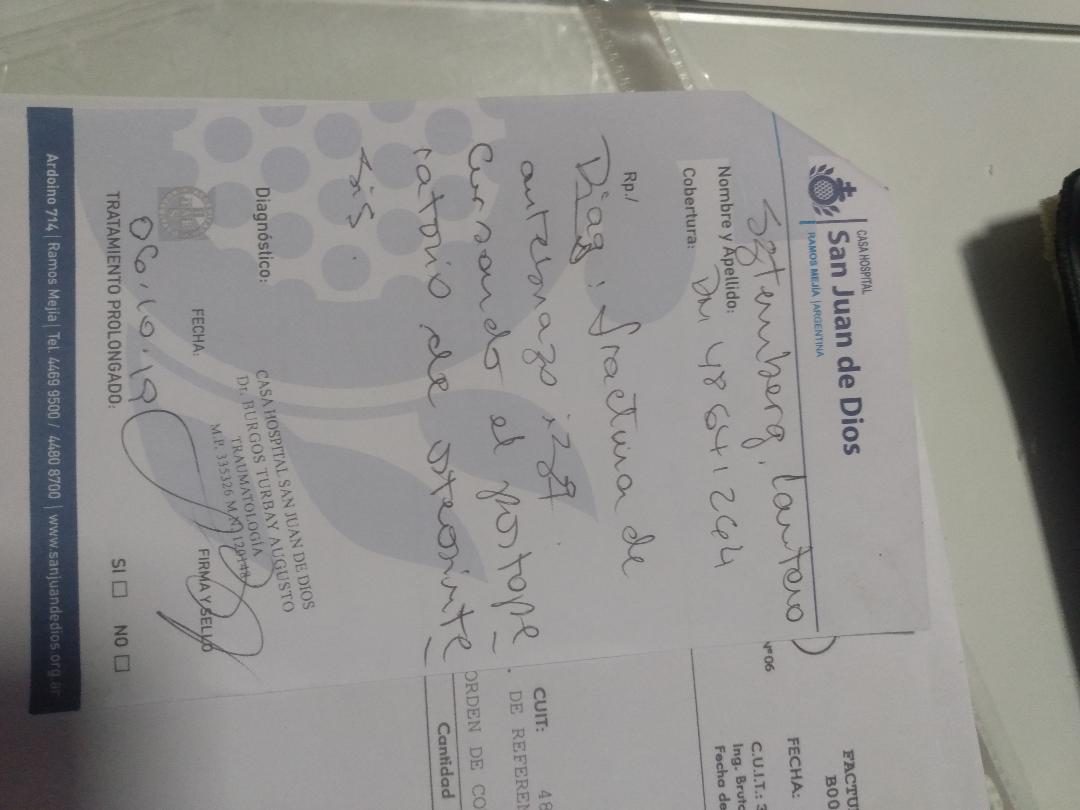 CASA HOSPITAL
San Juan de Dios
RAMOS MEJÍA | ARGENTINA
Sztemberg, Lautaro
Nombre y Apellido:
DNI 48641264
Cobertura:
Rp./
Diag: fractura de
antebrazo izq.
Cursando el postope
ratorio de osteosínte
sis.
Diagnóstico:
CASA HOSPITAL SAN JUAN DE DIOS
Dr. BURGOS TURBAY AUGUSTO
TRAUMATOLOGÍA
M.P. 335326 M.N. 120148
FECHA:
FIRMA Y SELLO
TRATAMIENTO PROLONGADO:
SI
NO
Ardoino 714 | Ramos Mejía | Tel. 4469 9500 / 4480 8700 | www.sanjuandedios.org.ar
FACTU
B00
N° 06
FECHA:
C.U.I.T.: 3
Ing. Brut
Fecha de
CUIT: 48
DE REFEREN
ORDEN DE CO
Cantidad